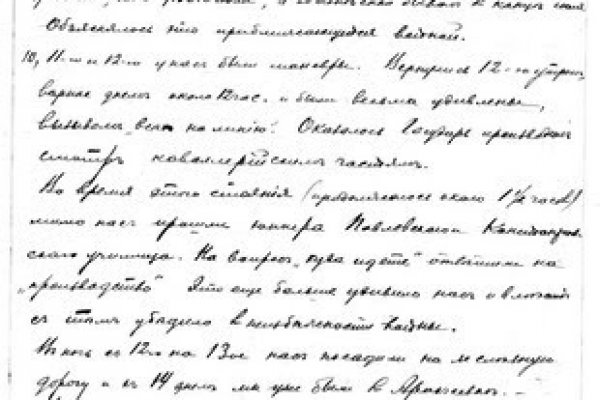 Объяснялось это приближающейся войной.
10, 11-го и 12-го у нас были маневры. Вернулись 12-го утром,
вернее днем около 12 час. и были весьма удивлены,
вызовом „всех на линию". Оказалось Государь производит
смотр кавалерийским частям.
Во время этого стояния (продолжалось около 1½ часов)
мимо нас прошли юнкера Павловского Константинов
ского училища. На вопрос „куда идете" ответили на
„производство" Это еще больше удивило нас и вместе
с тем убедило в неизбежности войны.
В ночь с 12го на 13ое нас посадили на железную
дорогу и 14 днем мы уже были в